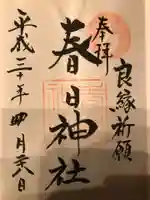 良縁祈願
奉拝
春日神社
平成三十年四月六日